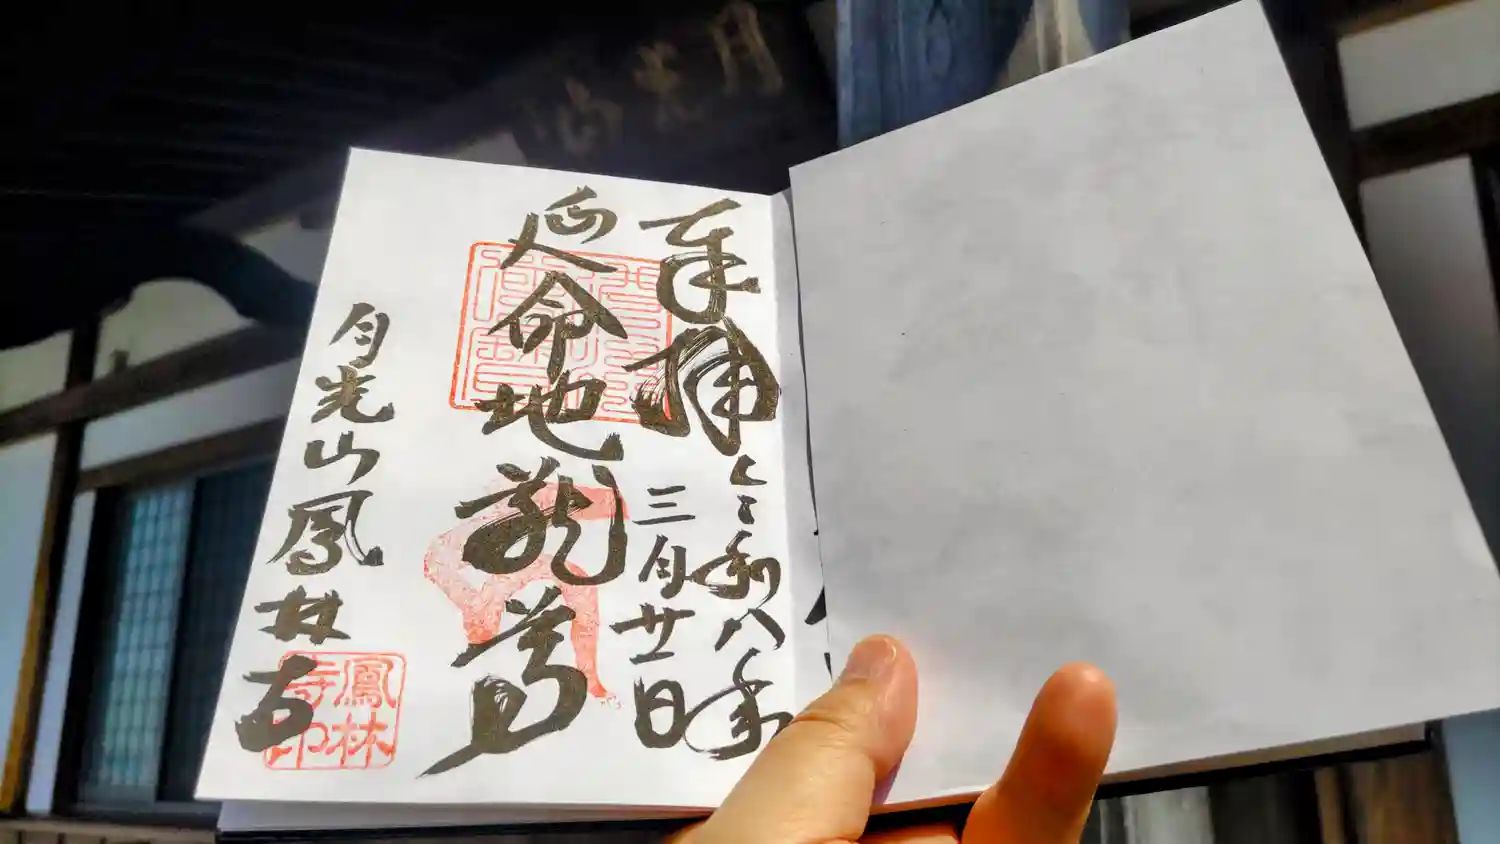 月光山
奉拝
令和八年
三月廿日
延命地蔵尊
月光山鳳林寺
鳳林
寺印